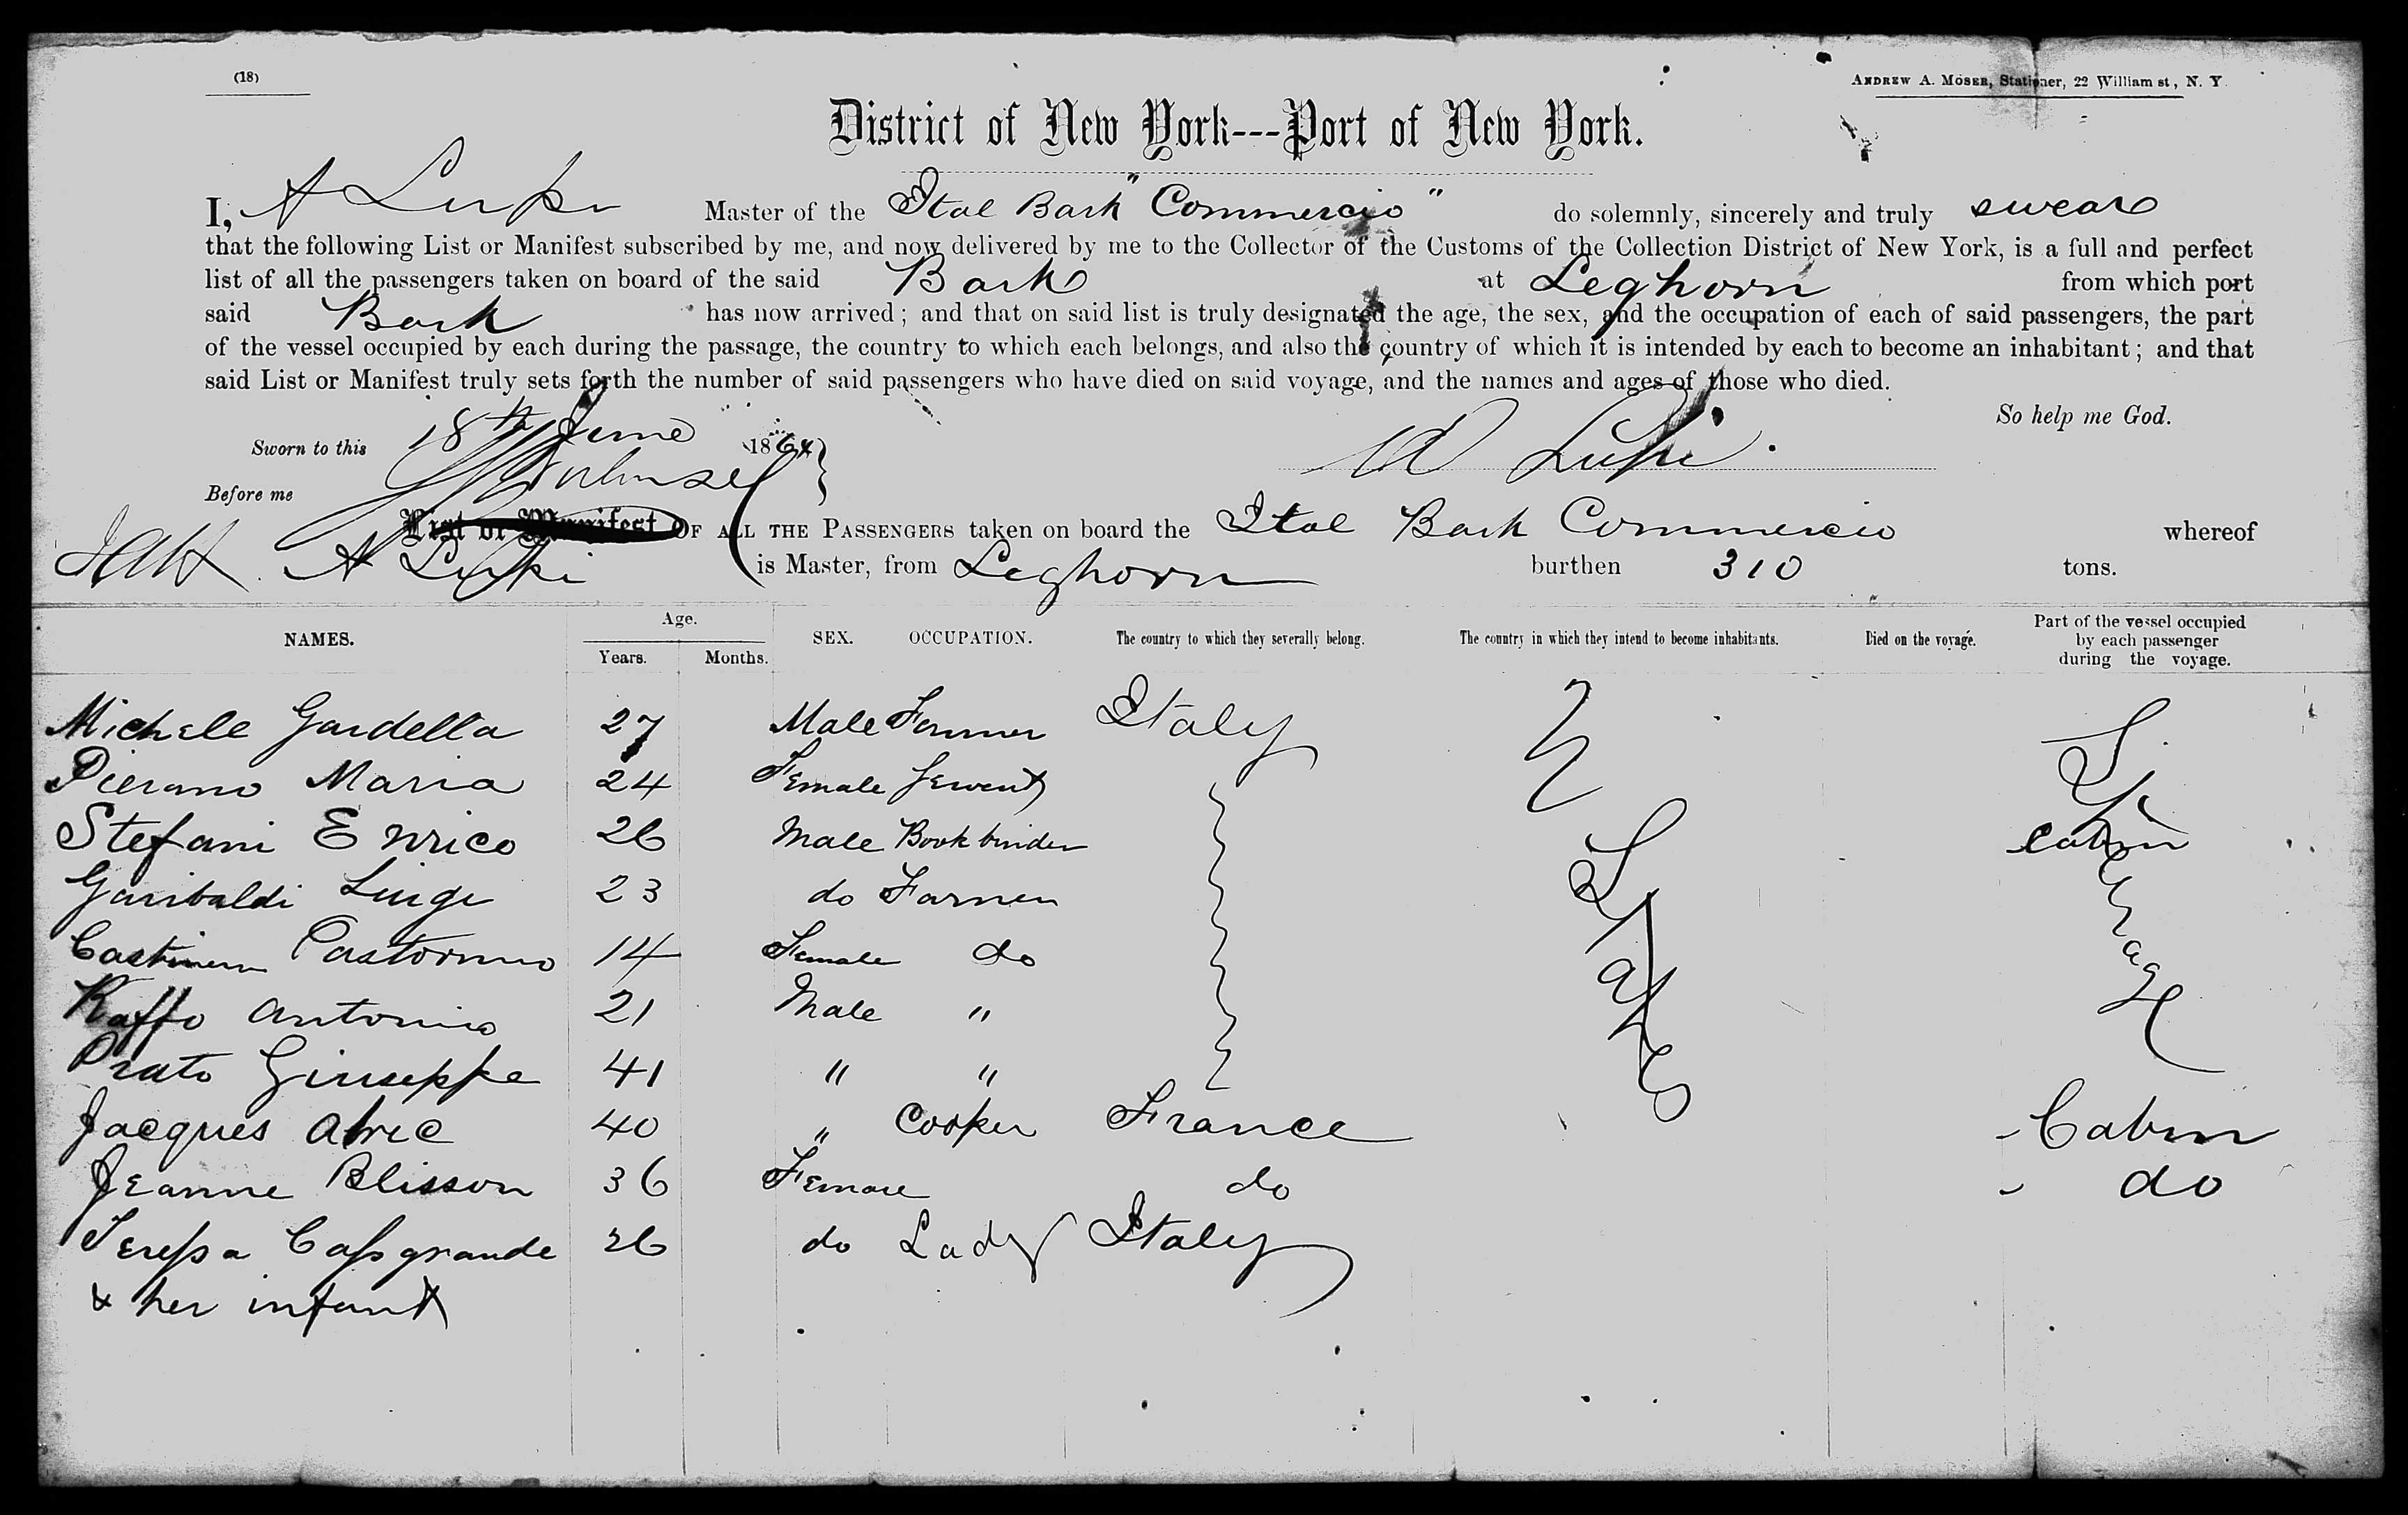 (18)
ANDREW A. MOSER, Stationer, 22 William st, N. Y.
District of New York---Port of New York.
I, A Lupi Master of the Ital Bark "Commercio" do solemnly, sincerely and truly swear
that the following List or Manifest subscribed by me, and now delivered by me to the Collector of the Customs of the Collection District of New York, is a full and perfect
list of all the passengers taken on board of the said Bark at Leghorn from which port
said Bark has now arrived; and that on said list is truly designated the age, the sex, and the occupation of each of said passengers, the part
of the vessel occupied by each during the passage, the country to which each belongs, and also the country of which it is intended by each to become an inhabitant; and that
said List or Manifest truly sets forth the number of said passengers who have died on said voyage, and the names and ages of those who died.
So help me God.
Sworn to this 18th June 1864
A Lupi
Before me
List or Manifest OF ALL THE PASSENGERS taken on board the Ital Bark Commercio whereof
A Lupi is Master, from Leghorn burthen 310 tons.
NAMES. Age. Years. Months. SEX. OCCUPATION. The country to which they severally belong. The country in which they intend to become inhabitants. Died on the voyage. Part of the vessel occupied by each passenger during the voyage.
Michele Gardella 27 Male Farmer Italy U States Steerage
Pierano Maria 24 Female Servent
Stefani Enrico 26 Male Bookbinder Cabin
Garibaldi Luigi 23 do Farmer
Pastorino 14 Female do
Raffo Antonio 21 Male "
Prato Giuseppe 41 " "
Jacques Alric 40 " Cooper France Cabin
Jeanne Blisson 36 Female do do
Teressa Cassgrande 26 do Lady Italy
& her infant